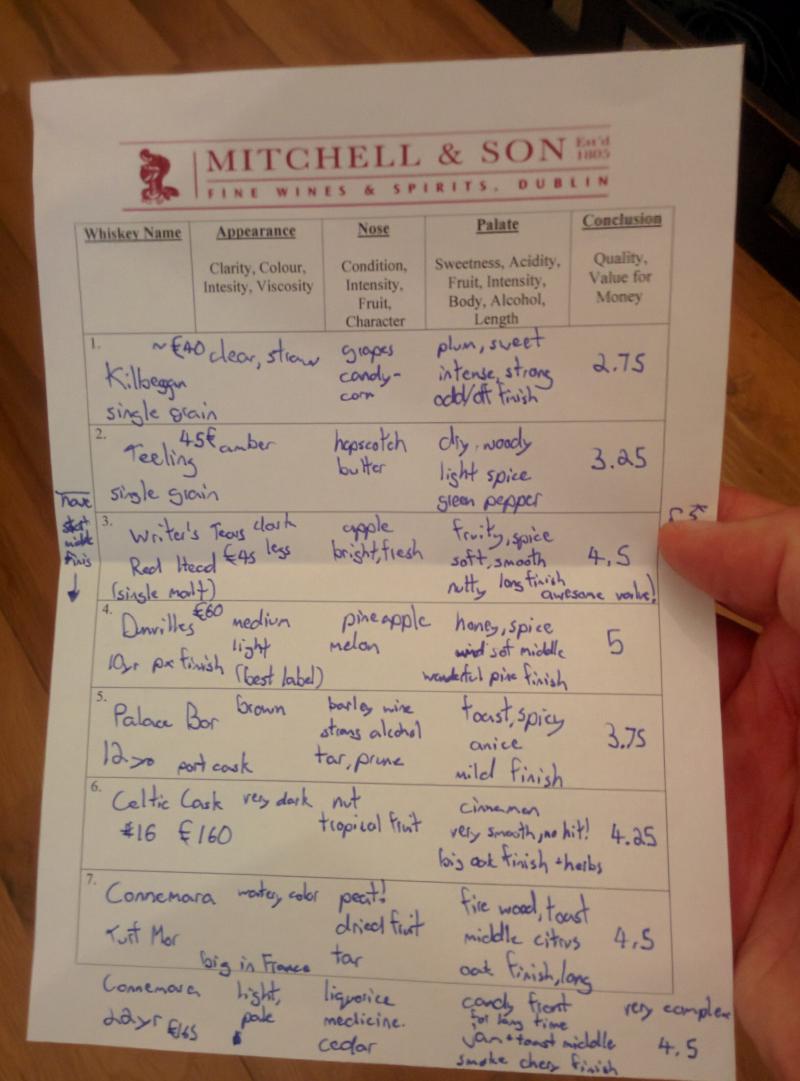 MITCHELL & SON Est'd 1805
FINE WINES & SPIRITS, DUBLIN
Whiskey Name Appearance Nose Palate Conclusion
Clarity, Colour, Intesity, Viscosity
Condition, Intensity, Fruit, Character
Sweetness, Acidity, Fruit, Intensity, Body, Alcohol, Length
Quality, Value for Money
1.
~€40
Kilbeggan
single grain
clear, straw
grapes
candy-
corn
plum, sweet
intense, strong
odd/off finish
2.75
2.
45€
Teeling
single grain
amber
hopscotch
butter
dry, woody
light spice
green pepper
3.25
3.
Writer's Tears
Red Head €45
(single malt)
dark
legs
apple
bright, fresh
fruity, spice
soft, smooth
nutty long finish
awesome value!
4.5
finis
4.
€60
Dunvilles
10yr px finish
medium
light
(best label)
pineapple
melon
honey, spice
soft middle
wonderful pine finish
5
5.
Palace Bar
12yo port cask
brown
barley wine
strong alcohol
tar, prune
toast, spicy
anice
mild finish
3.75
6.
Celtic Cask
#16 €160
very dark
nut
tropical fruit
cinnamon
very smooth, no hit!
big oak finish + herbs
4.25
7.
Connemara
Turf Mor
watery color
big in France
peat!
dried fruit
tar
fire wood, toast
middle citrus
oak finish, long
4.5
Connemara
22yr €165
light,
pale
liquorice
medicine.
cedar
candy front
for long time
toast middle
smoke finish
very complex
4.5